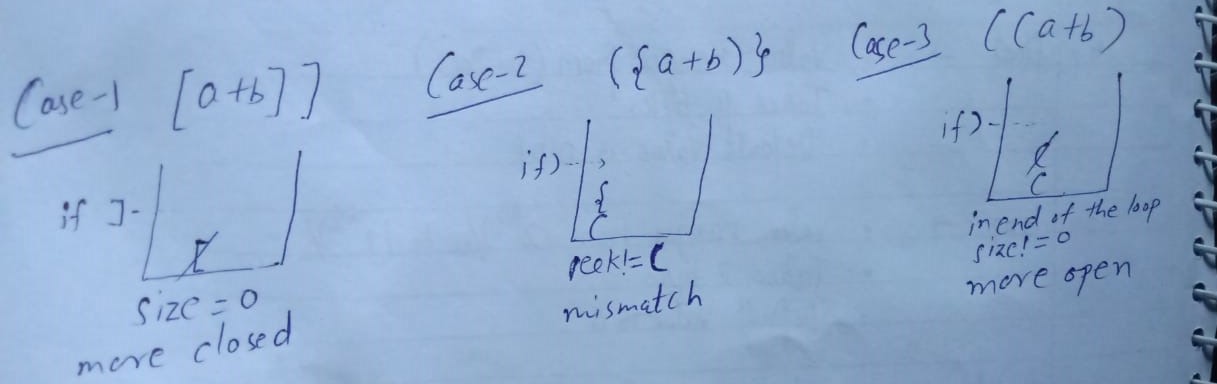 Case-1 [a+b]]
if ]-
[
size=0
more closed
Case-2 ({a+b)}
if)-
{
(
peek!=(
mismatch
Case-3 ((a+b)
if)-
(
(
in end of the loop
size!=0
more open